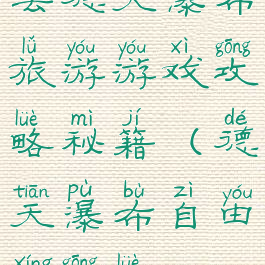 天瀑布
lǚ yóu yóu xì gōng
旅游游戏攻
lüè mì jí dé
略秘籍(德
tiān pù bù zì yóu
天瀑布自由
xíng gōng lüè